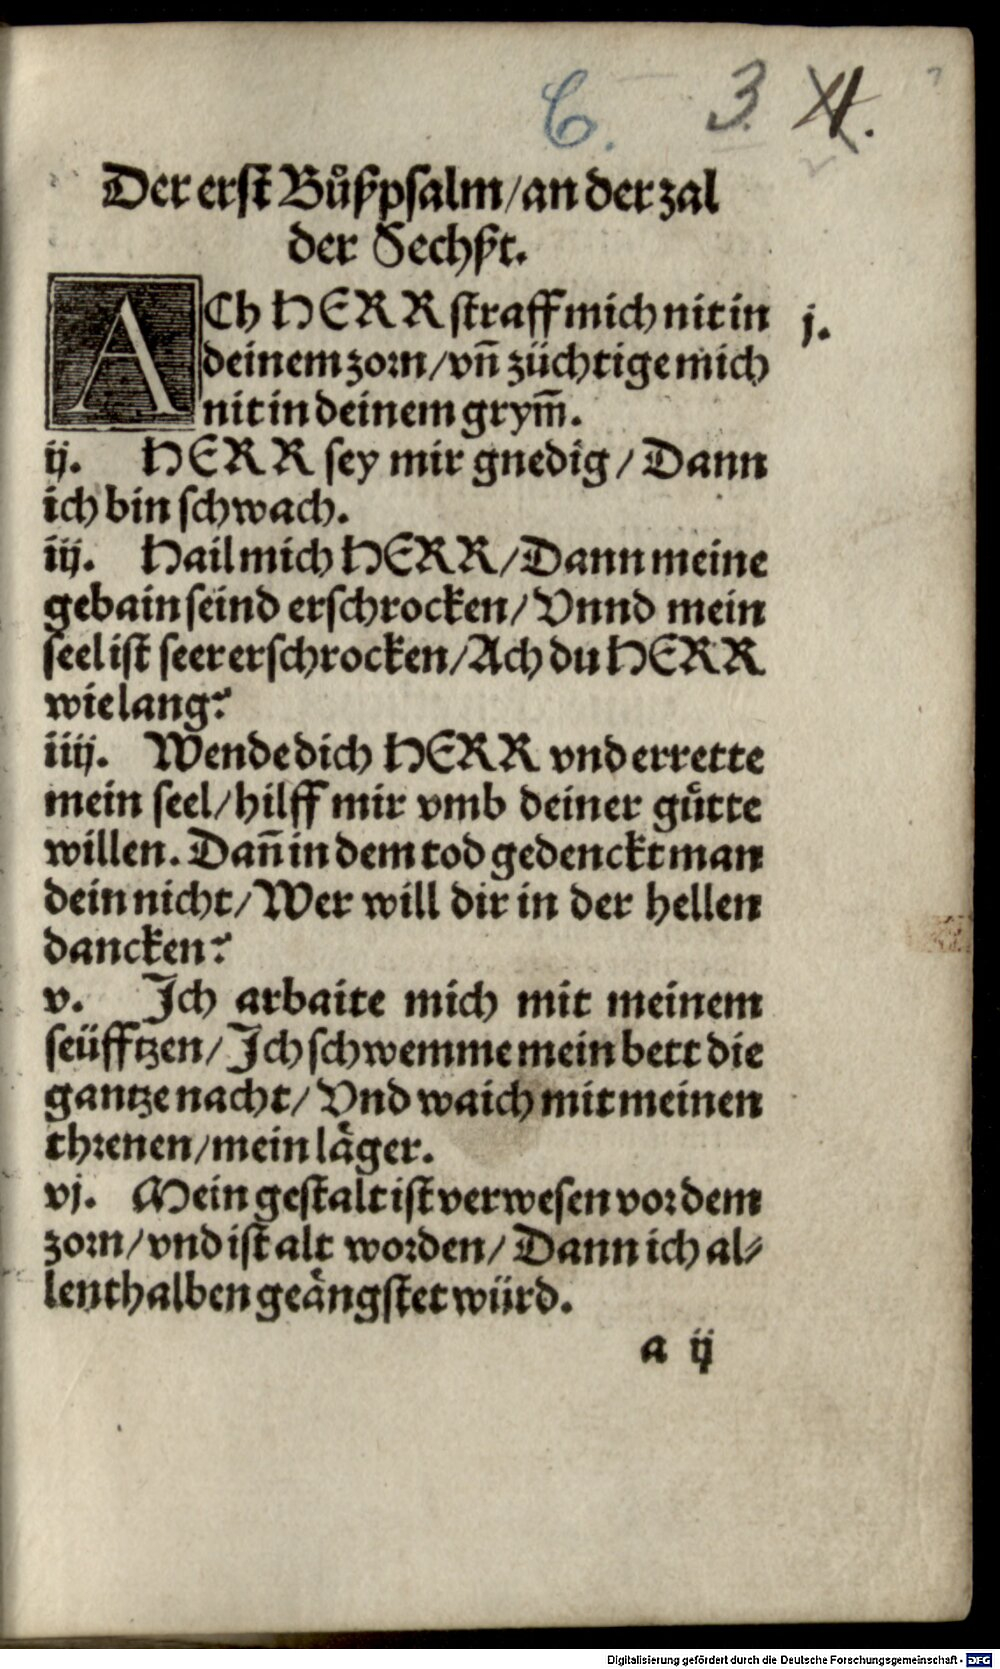 C. 3. 4.
Der erst Bůßpsalm/an der zal
der Sechßt.
ACh HERR straff mich nit in
j.
deinem zorn/vñ züchtige mich
nit in deinem grym̄.
ij. HERR sey mir gnedig/Dann
ich bin schwach.
iij. Hail mich HERR/Dann meine
gebain seind erschrocken/Vnnd mein
seel ist seer erschrocken/Ach du HERR
wie lang?
iiij. Wende dich HERR vnd errette
mein seel/hilff mir vmb deiner guͤtte
willen. Dañ in dem tod gedenckt man
dein nicht/Wer will dir in der hellen
dancken?
v. Ich arbaite mich mit meinem
seüfftzen/Ich schwemme mein bett die
gantze nacht/Vnd waich mit meinen
threnen/mein laͤger.
vj. Mein gestalt ist verwesen vor dem
zorn/vnd ist alt worden/Dann ich al⸗
lenthalben geaͤngstet würd.
a ij
Digitalisierung gefördert durch die Deutsche Forschungsgemeinschaft - DFG